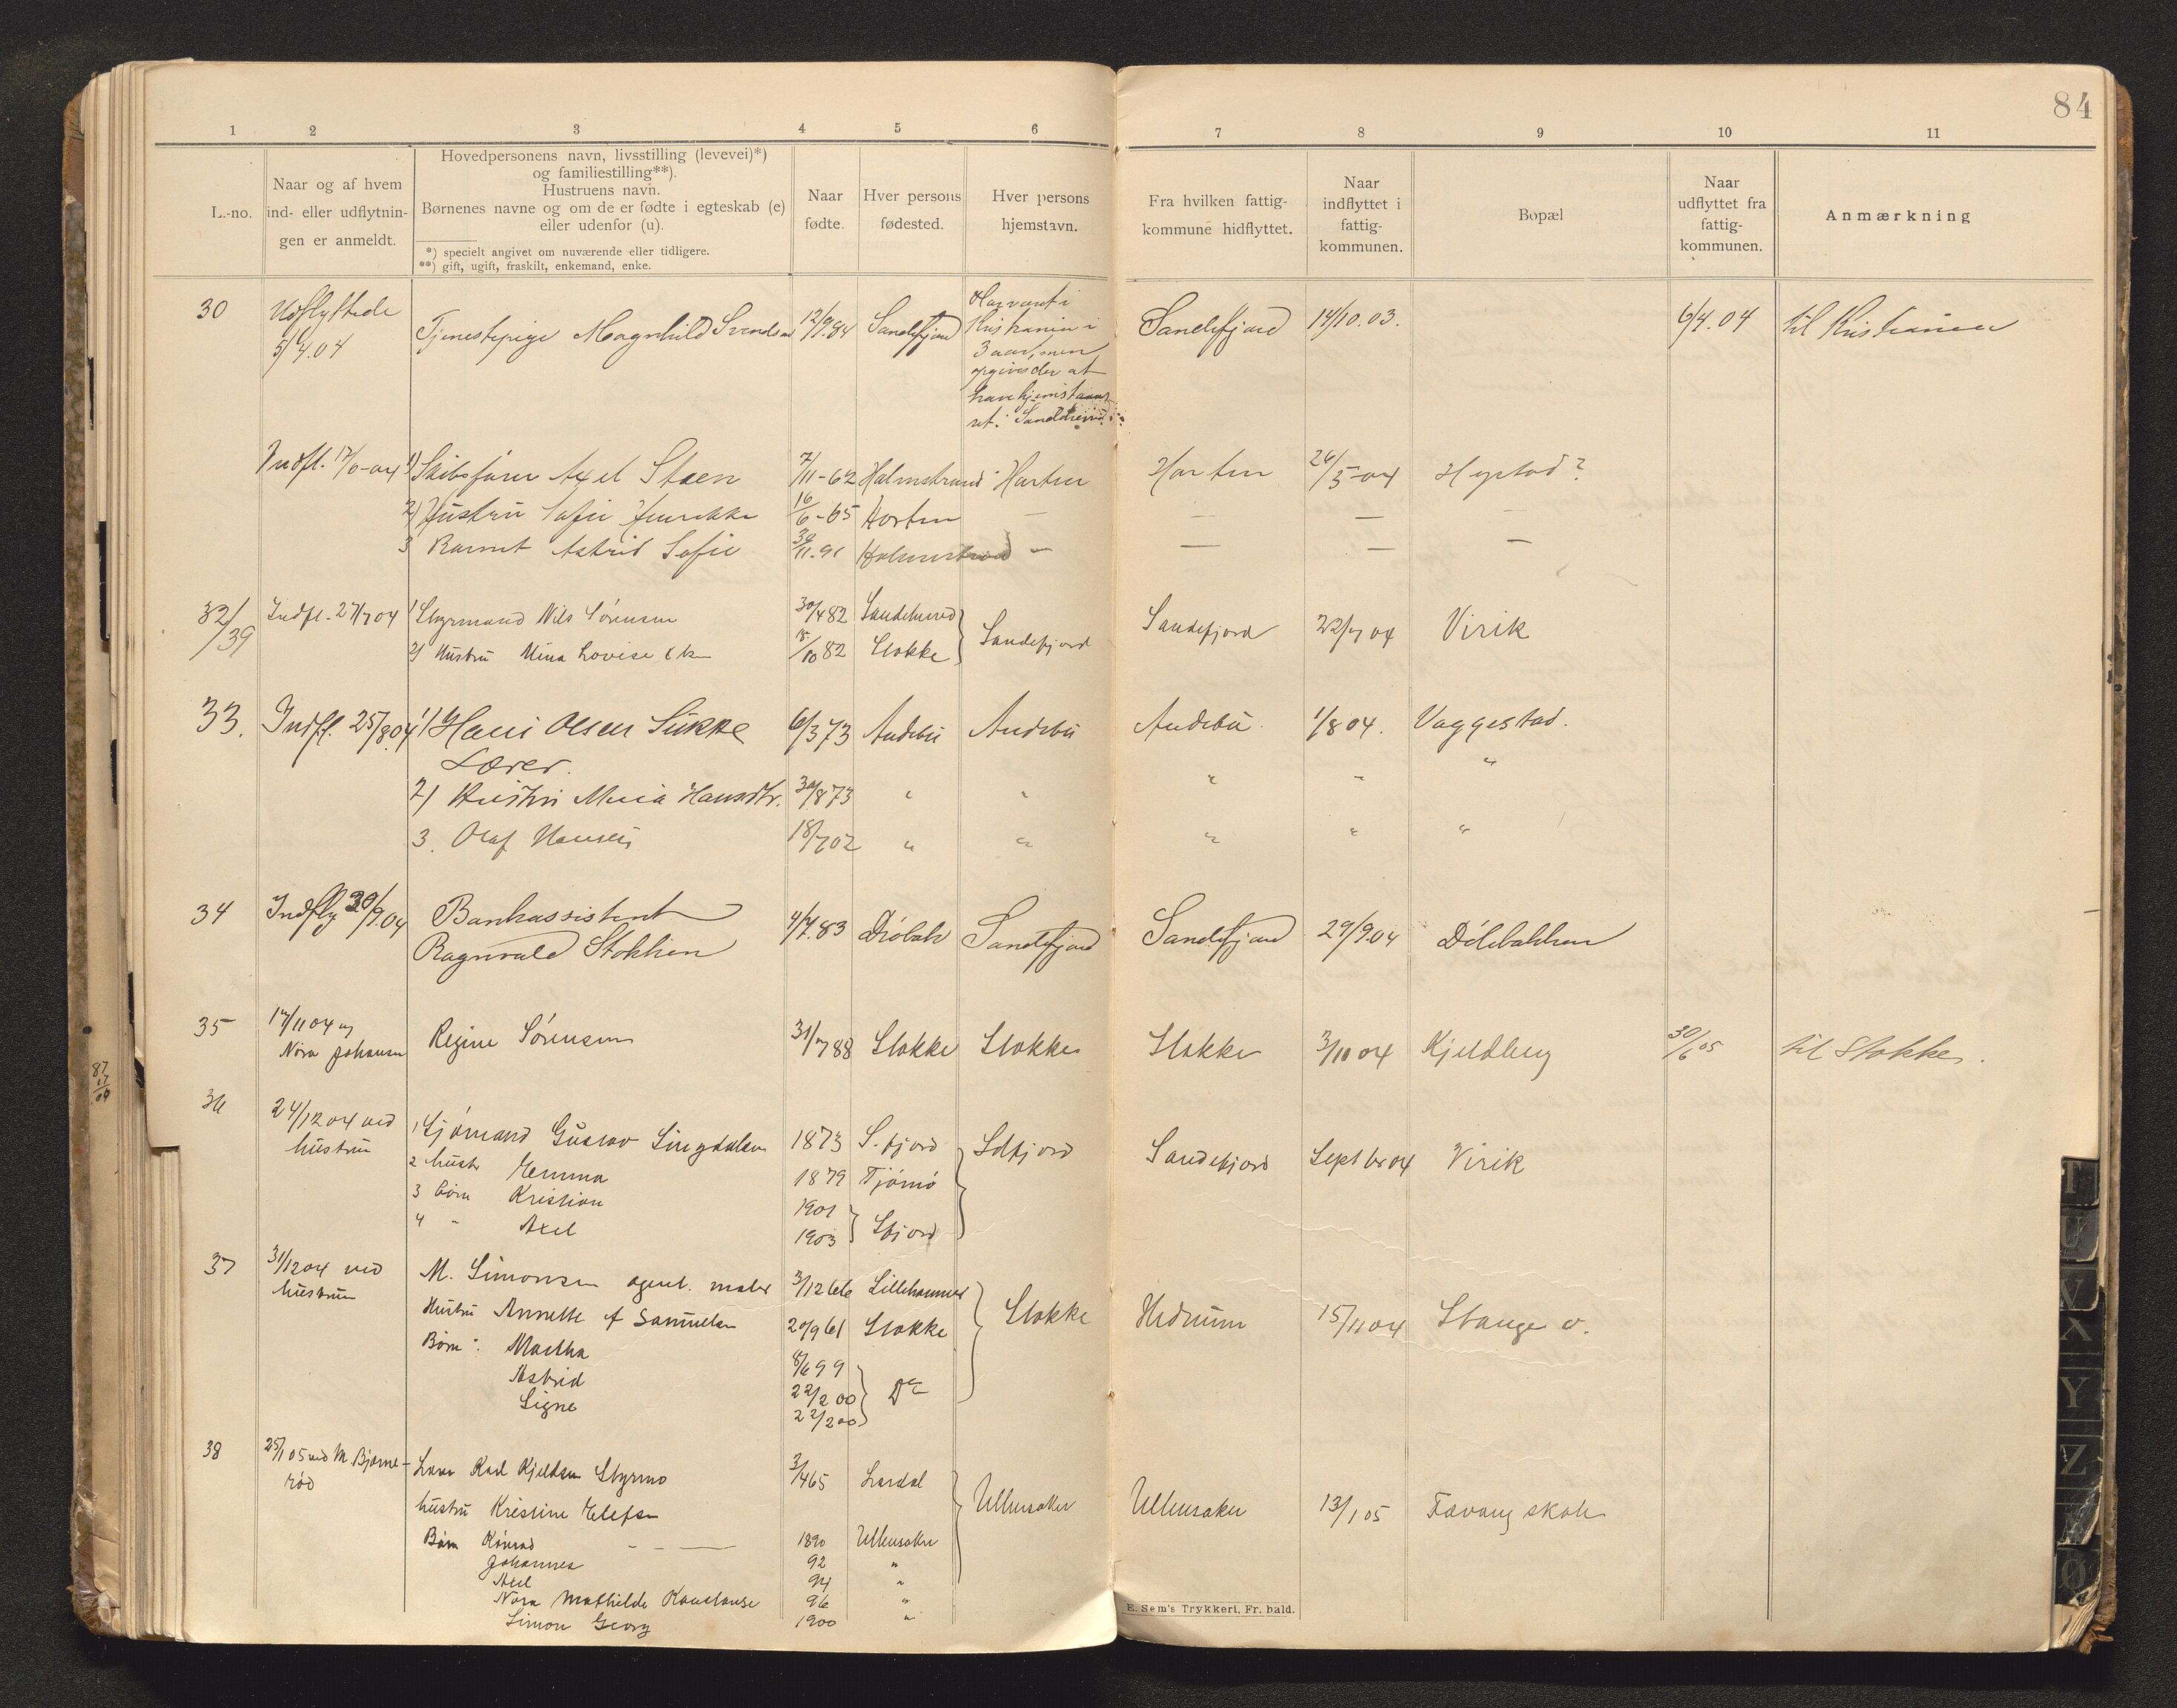 84
1 2 3 4 5 6 7 8 9 10 11
L.-no.
Naar og af hvem
ind- eller udflytnin-
gen er anmeldt.
Hovedpersonens navn, livsstilling (levevei)*)
og familiestilling**).
Hustruens navn.
Børnenes navne og om de er fødte i egteskab (e)
eller udenfor (u).
*) specielt angivet om nuværende eller tidligere.
**) gift, ugift, fraskilt, enkemand, enke.
Naar
fødte.
Hver persons
fødested.
Hver persons
hjemstavn.
Fra hvilken fattig-
kommune hidflyttet.
Naar
indflyttet i
fattig-
kommunen.
Bopæl
Naar
udflyttet fra
fattig-
kommunen.
Anmærkning
30 Udflyttede
5/4.04
Tjenestepige Magnhild Svendsen 12/9.84 Sandefjord
Har været i
Kristiania i
3 aar, men
opgives der at
have hjemstavns
ret i Sandeherred
Sandefjord 14/10.03. 6/4.04 til Kristiania
Indfl. 17/6-04 1) Skibsfører Axel Steen 7/11-62 Holmstrand Horten Horten 26/5-04 Hystad?
2) Hustru Sofie Henrikke 16/6-65 Horten — — — —
3 Barnet Astrid Sofie 30/11.91 Holmestrand — — — —
32/39 Indfl. 27/7 04 1 Styrmand Nils Sørensen 30/4 82 Sandeherred } Sandefjord Sandefjord 22/7 04 Virik
2) Hustru Mina Lovise 15/10 82 Stokke
33. Indfl. 25/8.04 1) Hans Olsen Sukke 6/3 73 Andebu Andebu Andebu. 1/8 04. Vaggestad.
Lærer.
2) Hustru Maria Hansdtr. 30/8 73 " " " " "
3. Olaf Hansen 18/7 02 " " " " "
34 Indfly 30/9.04 Bankassistent
Ragnvald Stokken 4/4.83 Drøbak Sandefjord Sandefjord 29/9.04 Dølebakken
35 17/11 04 af
Nora Johansen
Regine Sørensen 31/7 88 Stokke Stokke Stokke 3/10 04 Kjeldberg 30/6 05 til Stokke.
36 24/12 04 ved
hustrun
1 Sjømand Gustav Lingdalsen 1873 S.fjord } Sdfjord Sandefjord Septbr 04 Virik
2 hustr Emma 1879 Tjømø
3 børn Kristian 1901
4 " Axel 1903 } Sfjord
37 31/12 04 ved
hustrun
M. Simonsen agent. maler 3/12 66 Lillehammer } Stokke Hedrum 15/11 04 Stange ø.
Hustru Annette f Samuelsen 20/9 61 Stokke
Børn: Martha 8/6 99
Astrid 22/2 00 } Do
Signe 22/2 00
38 25/1 05 ved M. Bjørne-
rød
Lærer Karl Kjeldsen Styrmo 3/4 65 Lardal } Ullensaker Ullensaker 13/1 05 Fævang skole
hustru Kristine Elefsen
Børn Konrad 1890 Ullensaker
Johannes 92 "
Axel 94 "
Nora Mathilde Konstanse 96 "
Simon Georg 1900 "
87
17
04
E. Sem's Trykkeri, Fr.hald.
T
U
V
X
Y
Z
Æ
Ø